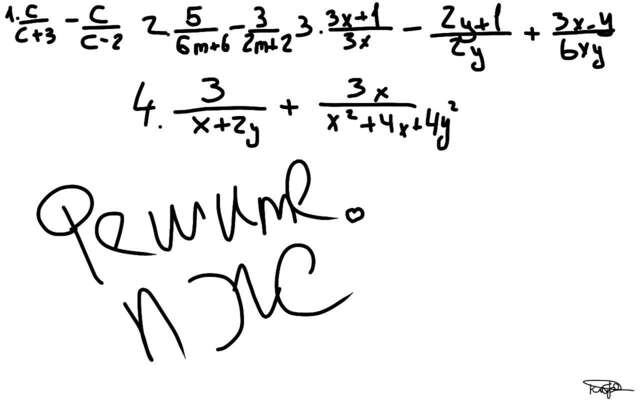 1. c/(c+3) - c/(c-2) 2. 5/(6m+6) - 3/(2m+2) 3. (3x+1)/(3x) - (2y+1)/(2y) + (3x-y)/(6xy)
4. 3/(x+2y) + 3x/(x²+4x+4y²)
Решите.
ПЖС